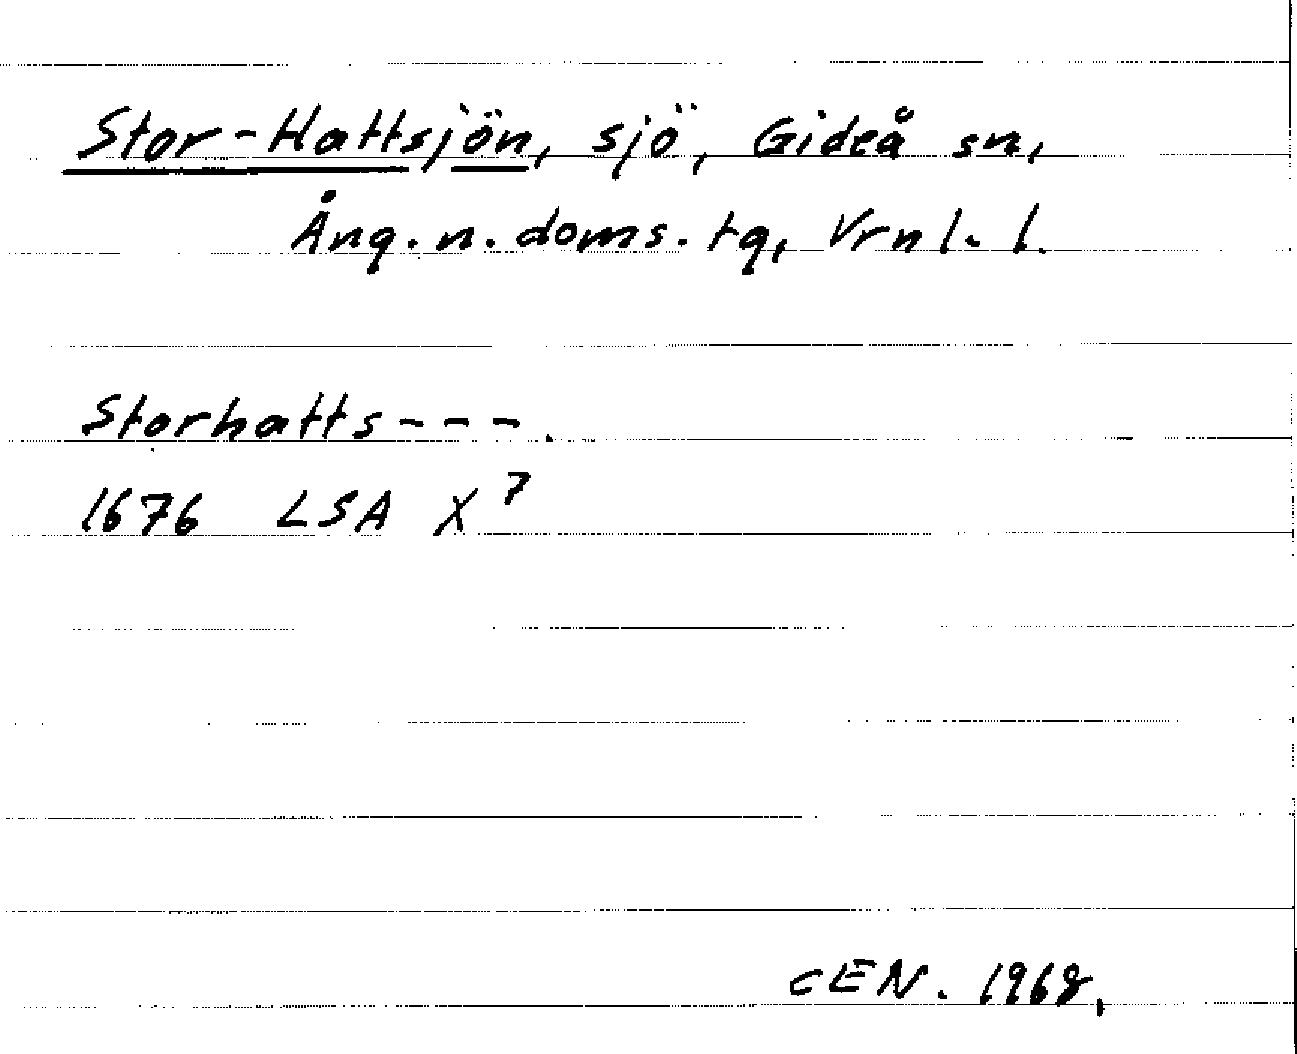 Stor-Hattsjön, sjö, Gideå sn,
Ång. n. doms. tg, Vrnl. l.
Storhatts---.
1676 LSA X7
CEN. 1968,